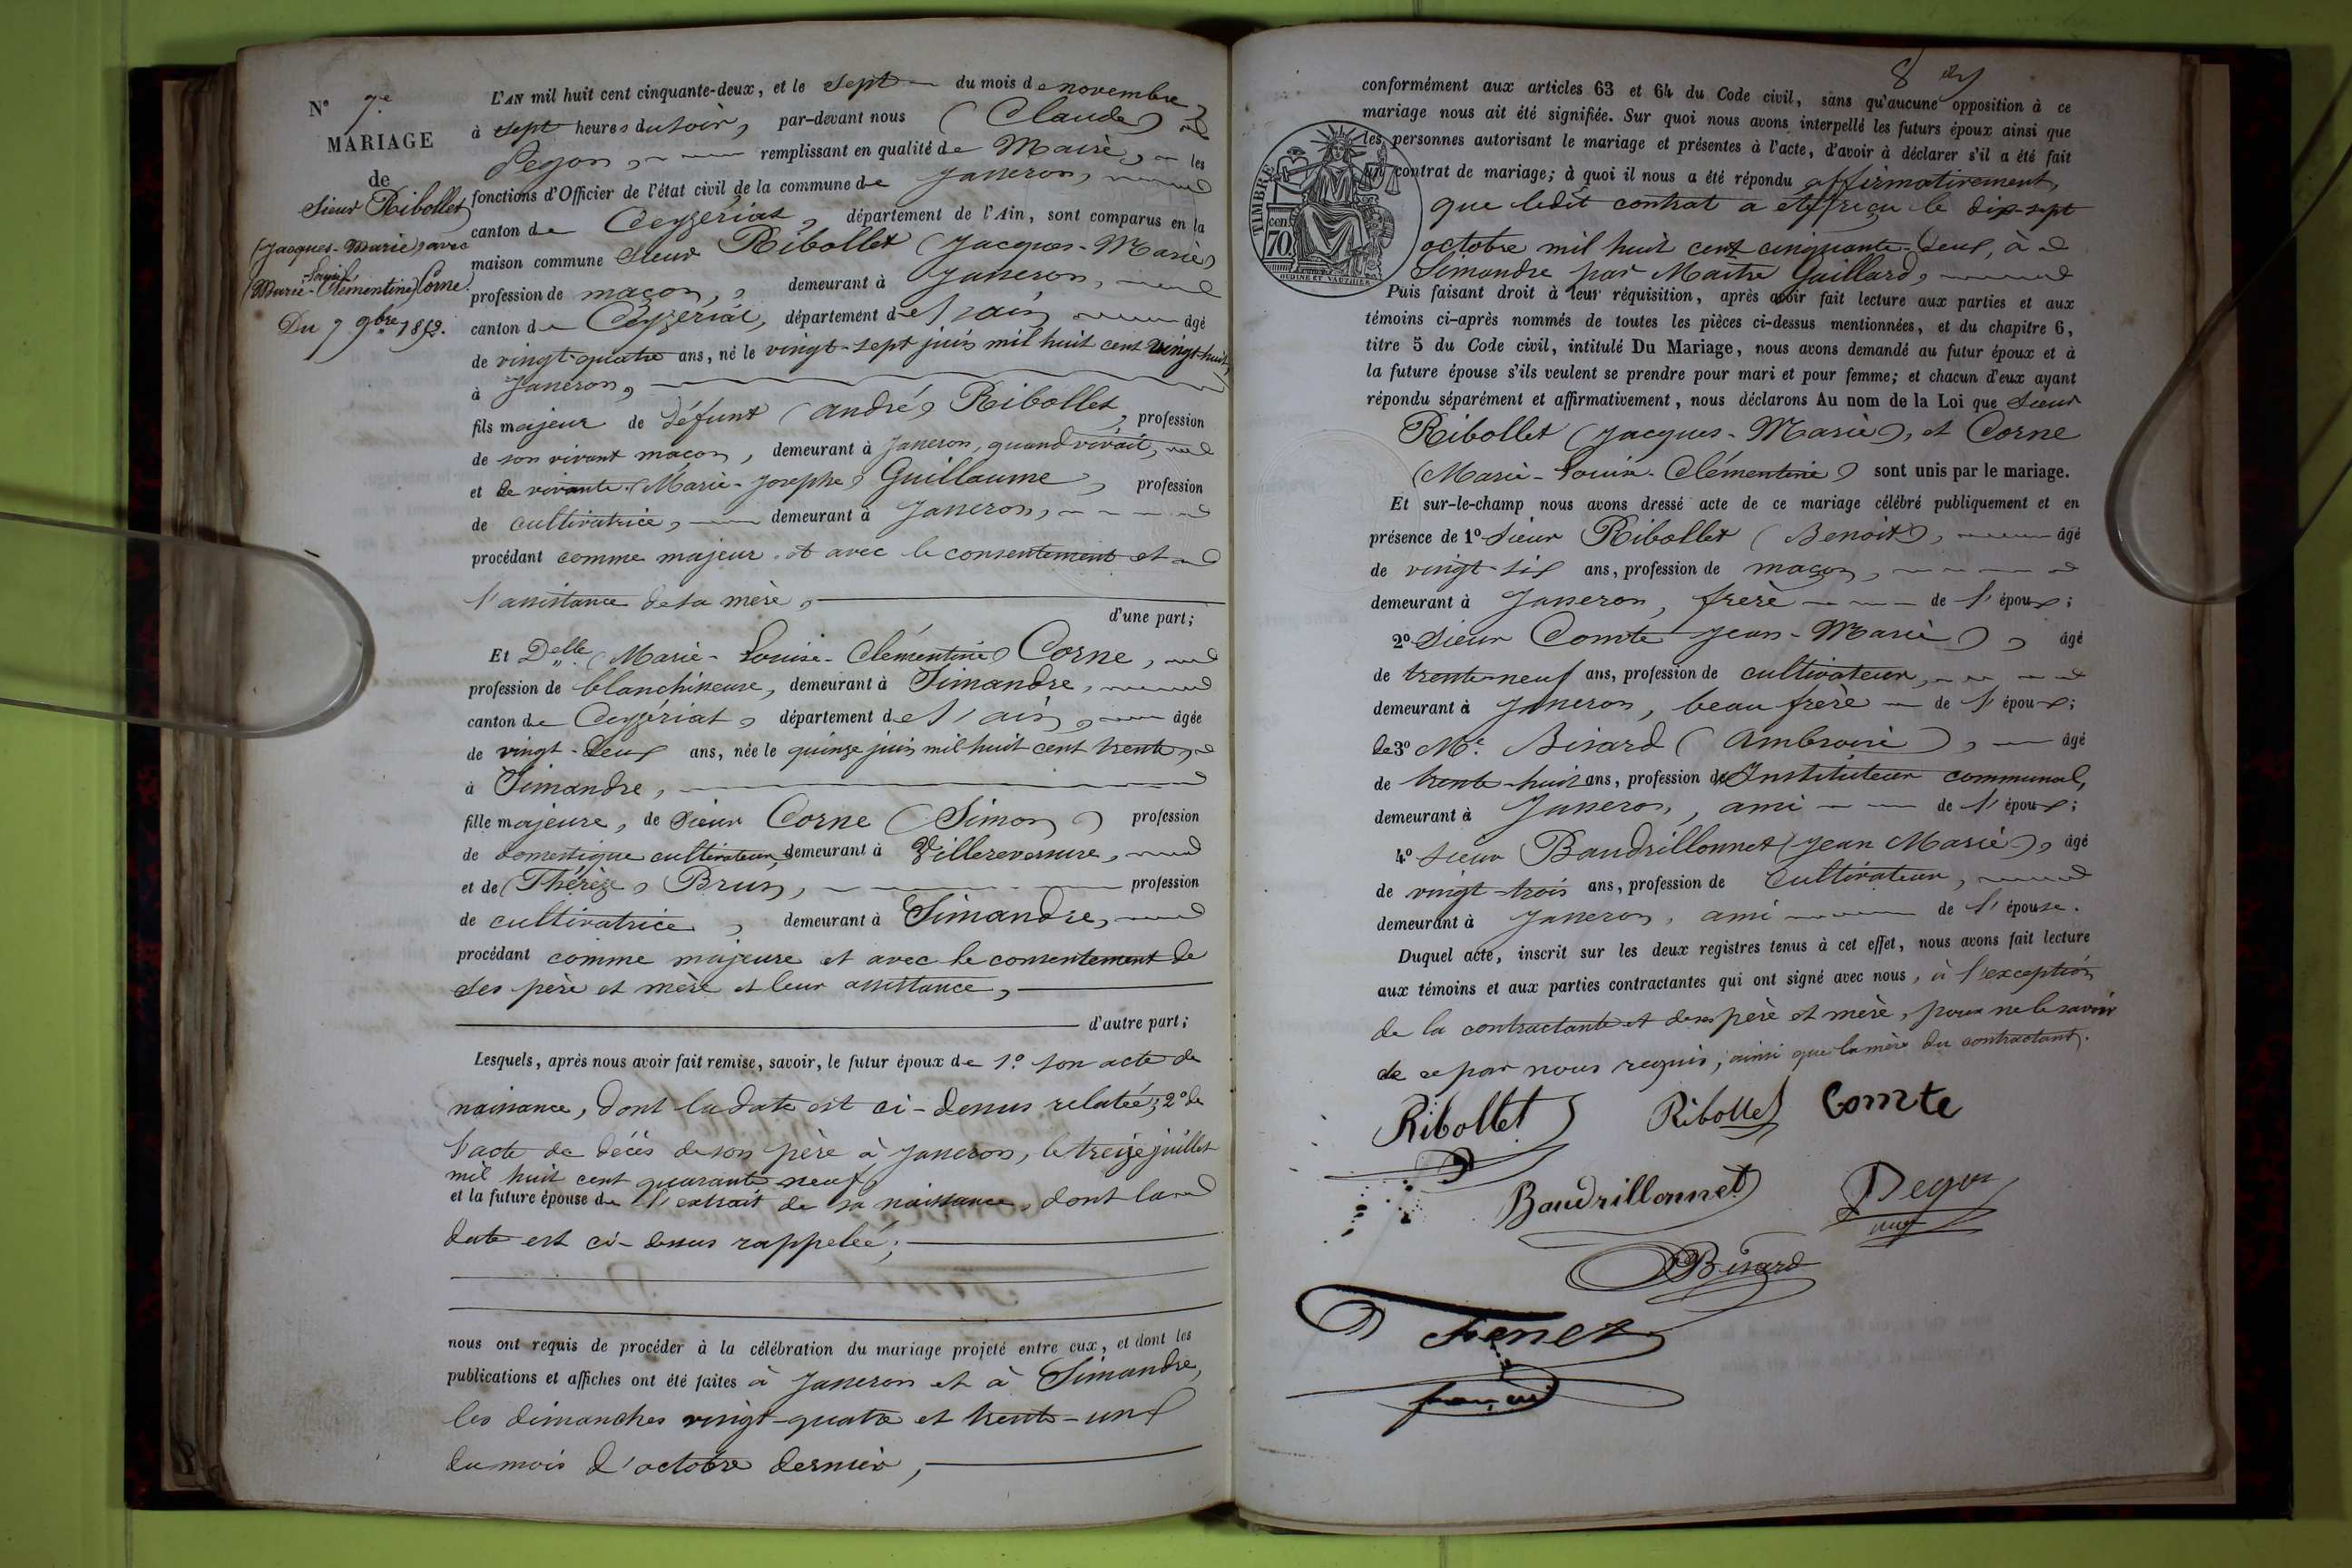 N° 7e
MARIAGE
de
Sieur Ribollet
(Jacques-Marie) avec
-Louise-
(Marie-Clémentine) Corne.
Du 7 9bre 1852.
L'AN mil huit cent cinquante-deux, et le sept du mois de novembre
à sept heures du soir, par-devant nous (Claude)
Pegon, remplissant en qualité de Maire, les
fonctions d'Officier de l'état civil de la commune de Jasseron,
canton de Ceyzériat, département de l'Ain, sont comparus en la
maison commune Sieur Ribollet (Jacques-Marie)
profession de maçon, demeurant à Jasseron,
canton de Ceyzériat, département de l'ain, âgé
de vingt-quatre ans, né le vingt-sept juin mil huit cent vingt-huit,
à Jasseron,
fils majeur de défunt (André) Ribollet, profession
de son vivant maçon, demeurant à Jasseron, quand vivait,
et de vivante (Marie-Josephe) Guillaume, profession
de cultivatrice, demeurant à Jasseron,
procédant comme majeur et avec le consentement et
l'assistance de sa mère,
d'une part;
Et Delle (Marie-Louise-Clémentine) Corne,
profession de blanchisseuse, demeurant à Simandre,
canton de Ceyzériat, département de l'ain, âgée
de vingt-deux ans, née le quinze juin mil huit cent trente,
à Simandre,
fille majeure, de Sieur Corne (Simon) profession
de domestique cultivateur, demeurant à Villereversure,
et de (Thérèze) Brun, profession
de cultivatrice, demeurant à Simandre,
procédant comme majeure et avec le consentement de
ses père et mère et leur assistance,
d'autre part;
Lesquels, après nous avoir fait remise, savoir, le futur époux de 1° son acte de
naissance, dont la date est ci-dessus relatée; 2° de
l'acte de décès de son père à Jasseron, le treize juillet
mil huit cent quarante-neuf,
et la future épouse de l'extrait de sa naissance, dont la
date est ci-dessus rappelée;
nous ont requis de procéder à la célébration du mariage projeté entre eux, et dont les
publications et affiches ont été faites à Jasseron et à Simandre,
les dimanches vingt-quatre et trente-un
du mois d'octobre dernier,
8
conformément aux articles 63 et 64 du Code civil, sans qu'aucune opposition à ce
mariage nous ait été signifiée. Sur quoi nous avons interpellé les futurs époux ainsi que
les personnes autorisant le mariage et présentes à l'acte, d'avoir à déclarer s'il a été fait
un contrat de mariage; à quoi il nous a été répondu affirmativement,
que ledit contrat a été reçu le dix-sept
octobre mil huit cent cinquante-deux, à
Simandre par Maître Gaillard,
TIMBRE
70 cent
OUDINÉ ET GAUTHIER
Puis faisant droit à leur réquisition, après avoir fait lecture aux parties et aux
témoins ci-après nommés de toutes les pièces ci-dessus mentionnées, et du chapitre 6,
titre 5 du Code civil, intitulé Du Mariage, nous avons demandé au futur époux et à
la future épouse s'ils veulent se prendre pour mari et pour femme; et chacun d'eux ayant
répondu séparément et affirmativement, nous déclarons Au nom de la Loi que Sieur
Ribollet (Jacques-Marie), et Corne
(Marie-Louise-Clémentine) sont unis par le mariage.
Et sur-le-champ nous avons dressé acte de ce mariage célébré publiquement et en
présence de 1° Sieur Ribollet (Benoit), âgé
de vingt-six ans, profession de maçon,
demeurant à Jasseron, frère de l'époux;
2° Sieur Comte Jean-Marie), âgé
de trente-neuf ans, profession de cultivateur,
demeurant à Jasseron, beau frère de l'époux;
de 3° Mr. Bisard (Ambroise), âgé
de trente-huit ans, profession de Instituteur communal,
demeurant à Jasseron, ami de l'époux;
4° Sieur Baudrillonnet (Jean Marie), âgé
de vingt-trois ans, profession de Cultivateur,
demeurant à Jasseron, ami de l'épouse.
Duquel acte, inscrit sur les deux registres tenus à cet effet, nous avons fait lecture
aux témoins et aux parties contractantes qui ont signé avec nous, à l'exception
de la contractante et de ses père et mère, pour ne le savoir
de ce par nous requis; ainsi que la mère du contractant.
Ribollet Ribollet Comte
Baudrillonnet Pegon
Bisard